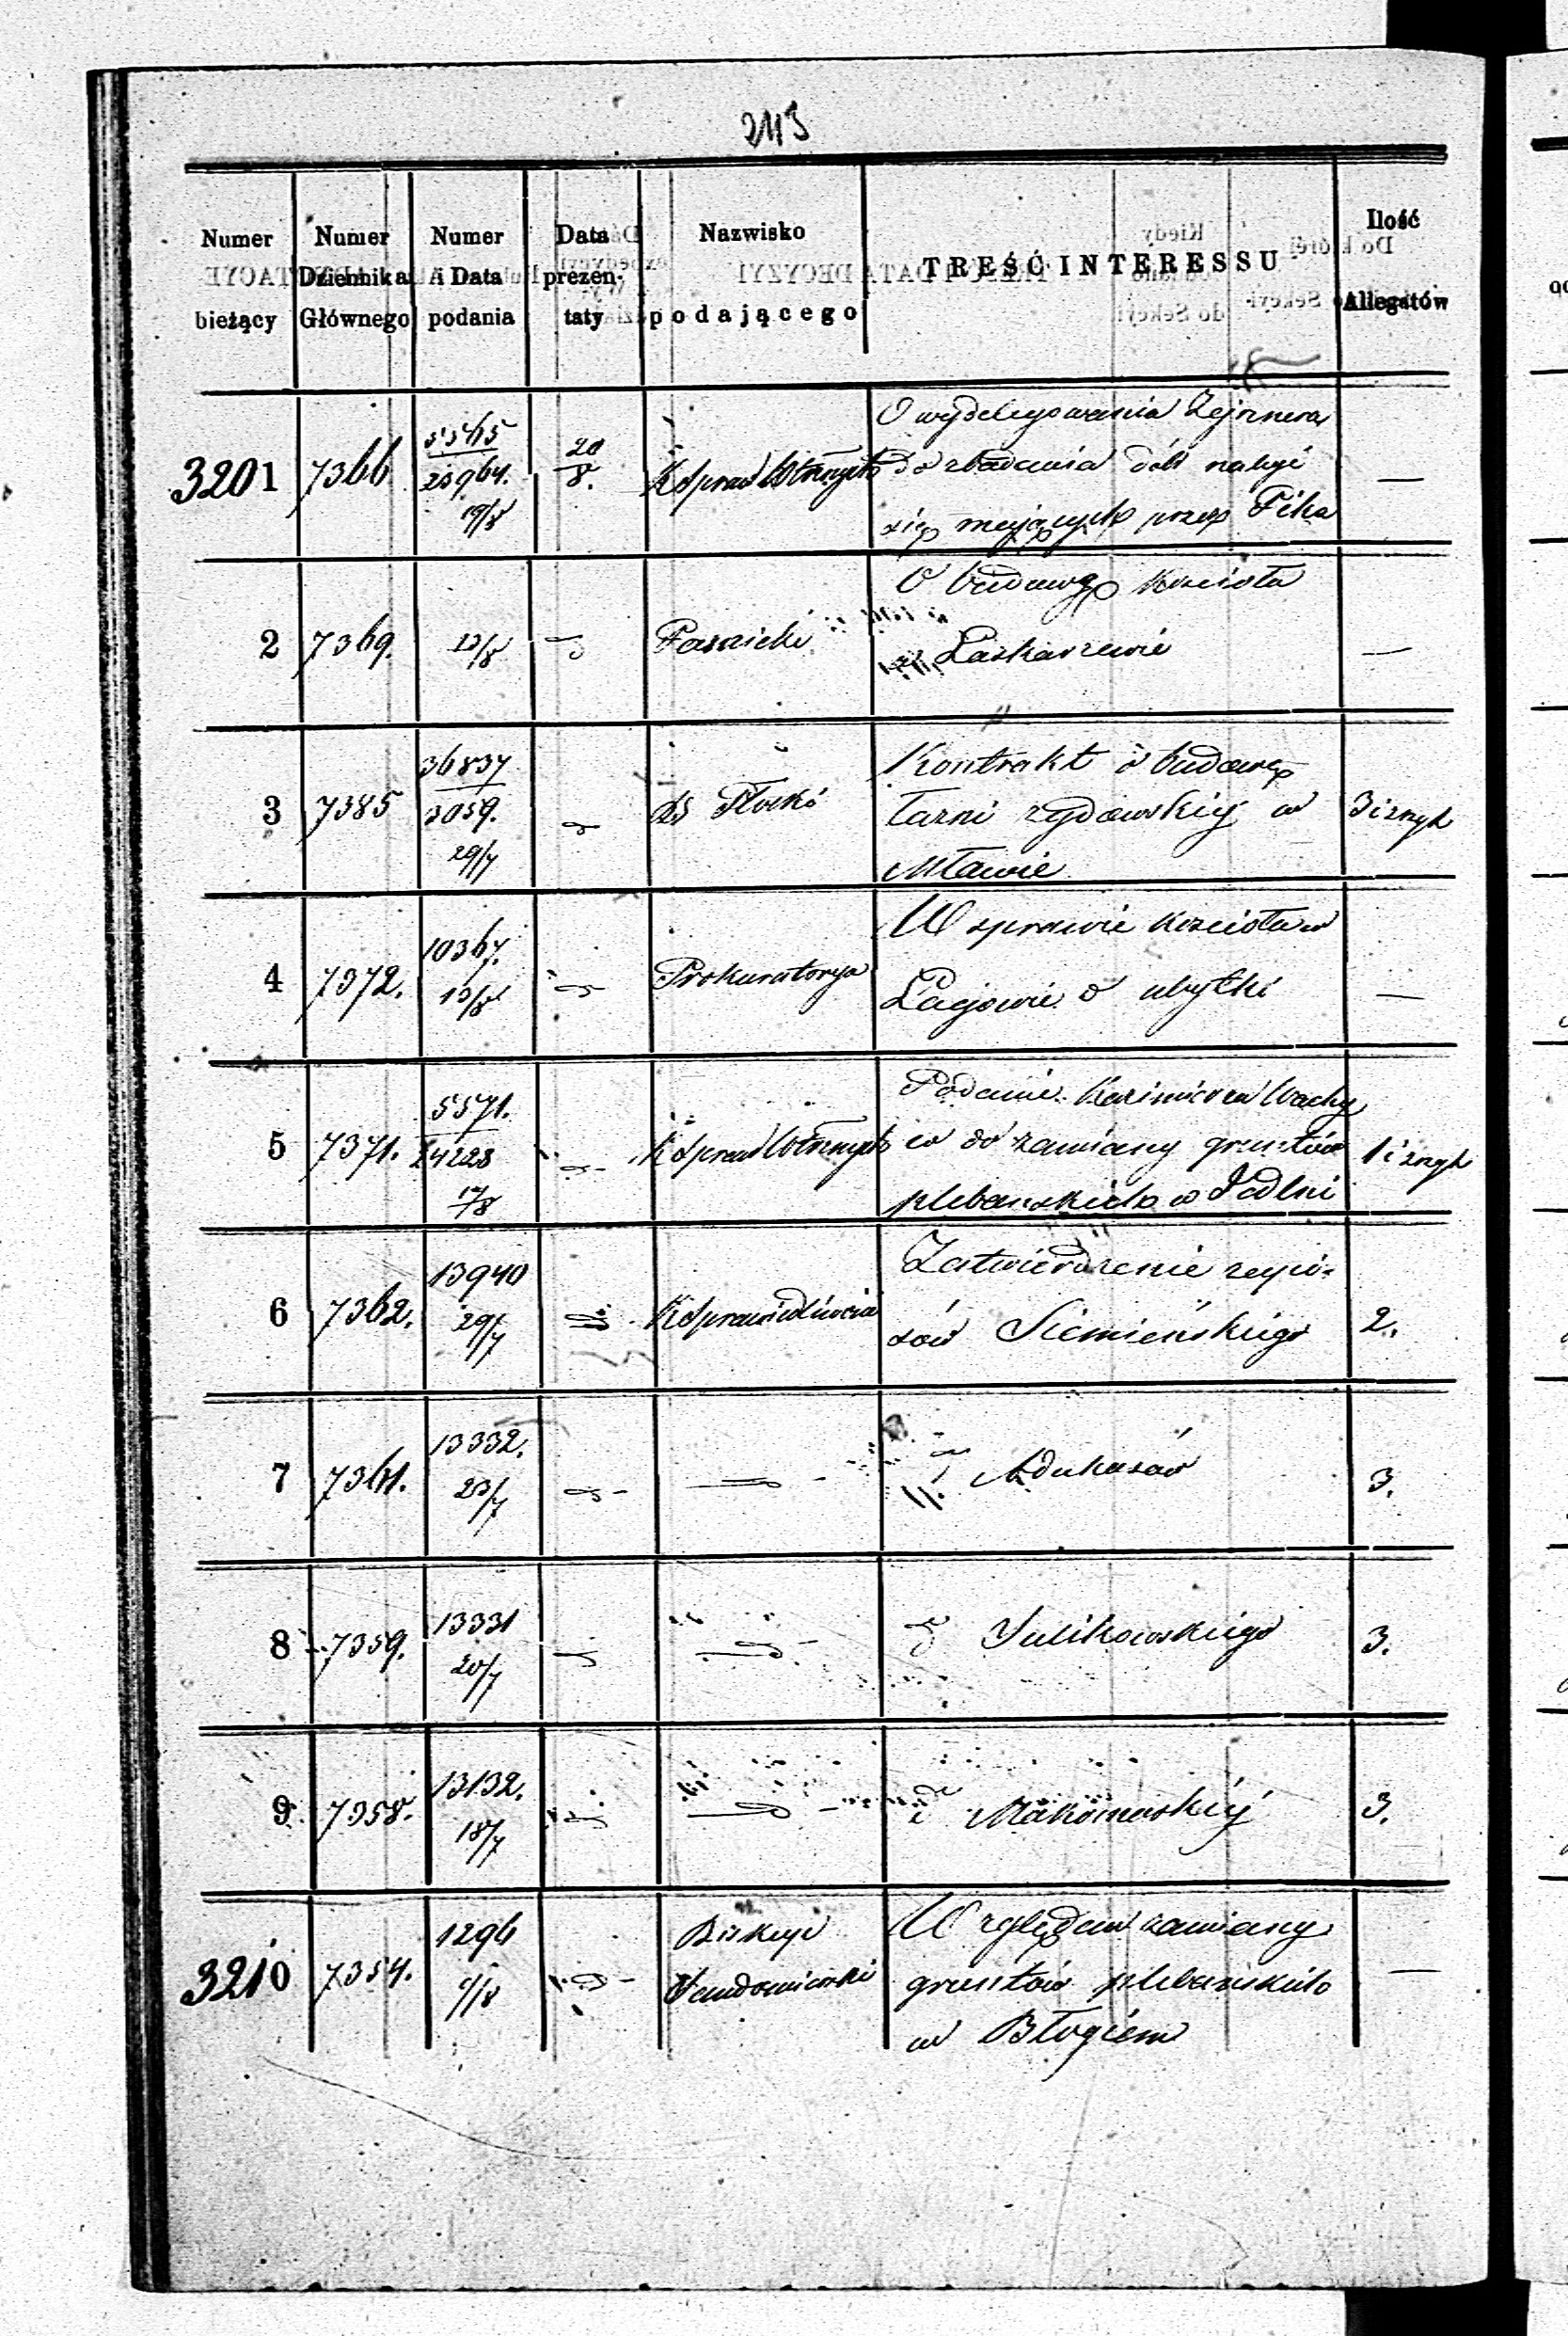 243
Numer bieżący | Numer Dziennika Głównego | Numer i Data podania | Data prezentaty | Nazwisko podającego | TREŚĆ INTERESSU | Ilość Allegatów
3201 | 7366 | 5565 / 23964. 19/8 | 20/8. | K Spraw Wtrznych | O wydelegowania
do zbadania dóbr
się mających przez Fika | —
2 | 7369. | 13/8 | | | O budowę kościoła
w Łaskarzewie | —
3 | 7385 | 36837 / 3059. 29/7 | | Płocki | Kontrakt o budowę
łazni żydowskiej w
Mławie | 3 i znyk
4 | 7372. | 10367. 13/8 | | Prokuratorya | W sprawie kościoła w
Łagowie o ubytki | —
5 | 7371. | 5571. / 14228 17/8 | | K Spraw Wtrznych | Podanie Kazimierza
co do zamiany gruntów
plebańskich w Jedlni | 1 i znyk
6 | 7362. | 13940 29/7 | | K Sprawiedliwości | Zatwierdzenie zapisów
Siemieńskiego | 2.
7 | 7361. | 13332. 23/7 | | | 3.
8 | 7359. | 13331 20/7 | | | Sulikowskiego | 3.
9 | 7358. | 13132. 18/7 | | | Makomaskiej | 3.
3210 | 7354. | 1296 | | Biskup
Sandomierski | Względem zamiany
gruntów plebańskich
w Błogiem | —